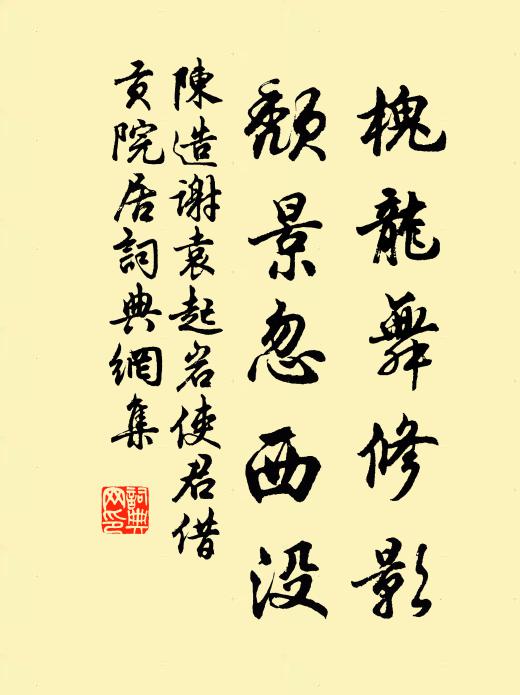 槐龍舞修影
頹景忽西没
陳造謝袁起岩使君借
貢院居詞典網集
詞典網印